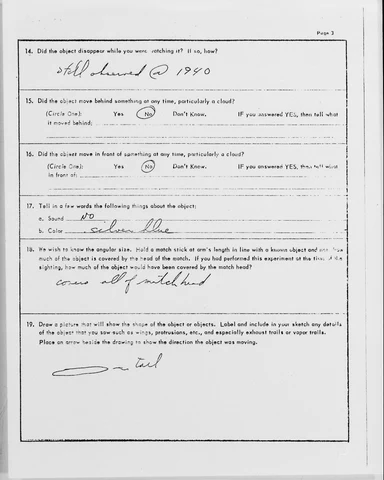 Page 3
14. Did the object disappear while you were watching it? If so, how?
still observed @ 1940
15. Did the object move behind something at any time, particularly a cloud?
(Circle One): Yes No Don't Know. IF you answered YES, then tell what
it moved behind:
16. Did the object move in front of something at any time, particularly a cloud?
(Circle One): Yes No Don't Know. IF you answered YES, then tell what
in front of:
17. Tell in a few words the following things about the object:
a. Sound NO
b. Color silver blue
18. We wish to know the angular size. Hold a match stick at arm's length in line with a known object and note how
much of the object is covered by the head of the match. If you had performed this experiment at the time of the
sighting, how much of the object would have been covered by the match head?
covers all of match head
19. Draw a picture that will show the shape of the object or objects. Label and include in your sketch any details
of the object that you saw such as wings, protrusions, etc., and especially exhaust trails or vapor trails.
Place an arrow beside the drawing to show the direction the object was moving.
tail